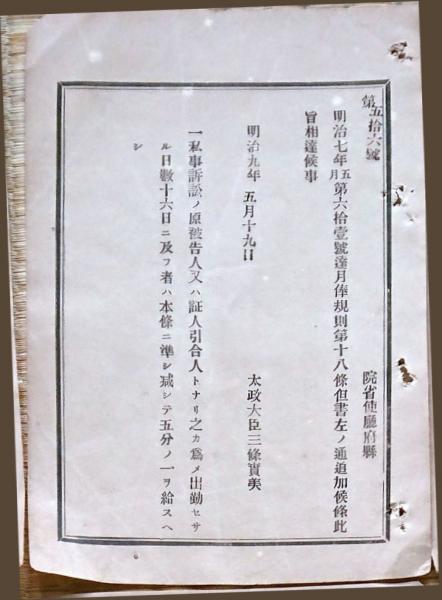 第五拾六號
院省使廳府縣
明治七年五月第六拾壹號達月俸規則第十八條但書左ノ通追加候條此
旨相達候事
明治九年 五月十九日
太政大臣三條實美
一私事訴訟ノ原被告人又ハ証人引合人トナリ之カ爲メ出勤セサ
ル日數十六日ニ及フ者ハ本條ニ準シ減シテ五分ノ一ヲ給スヘ
シ